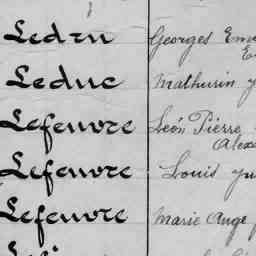 Ledru Georges
Leduc Mathurin
Lefeuvre Léon Pierre
Lefeuvre Louis
Lefeuvre Marie Ange